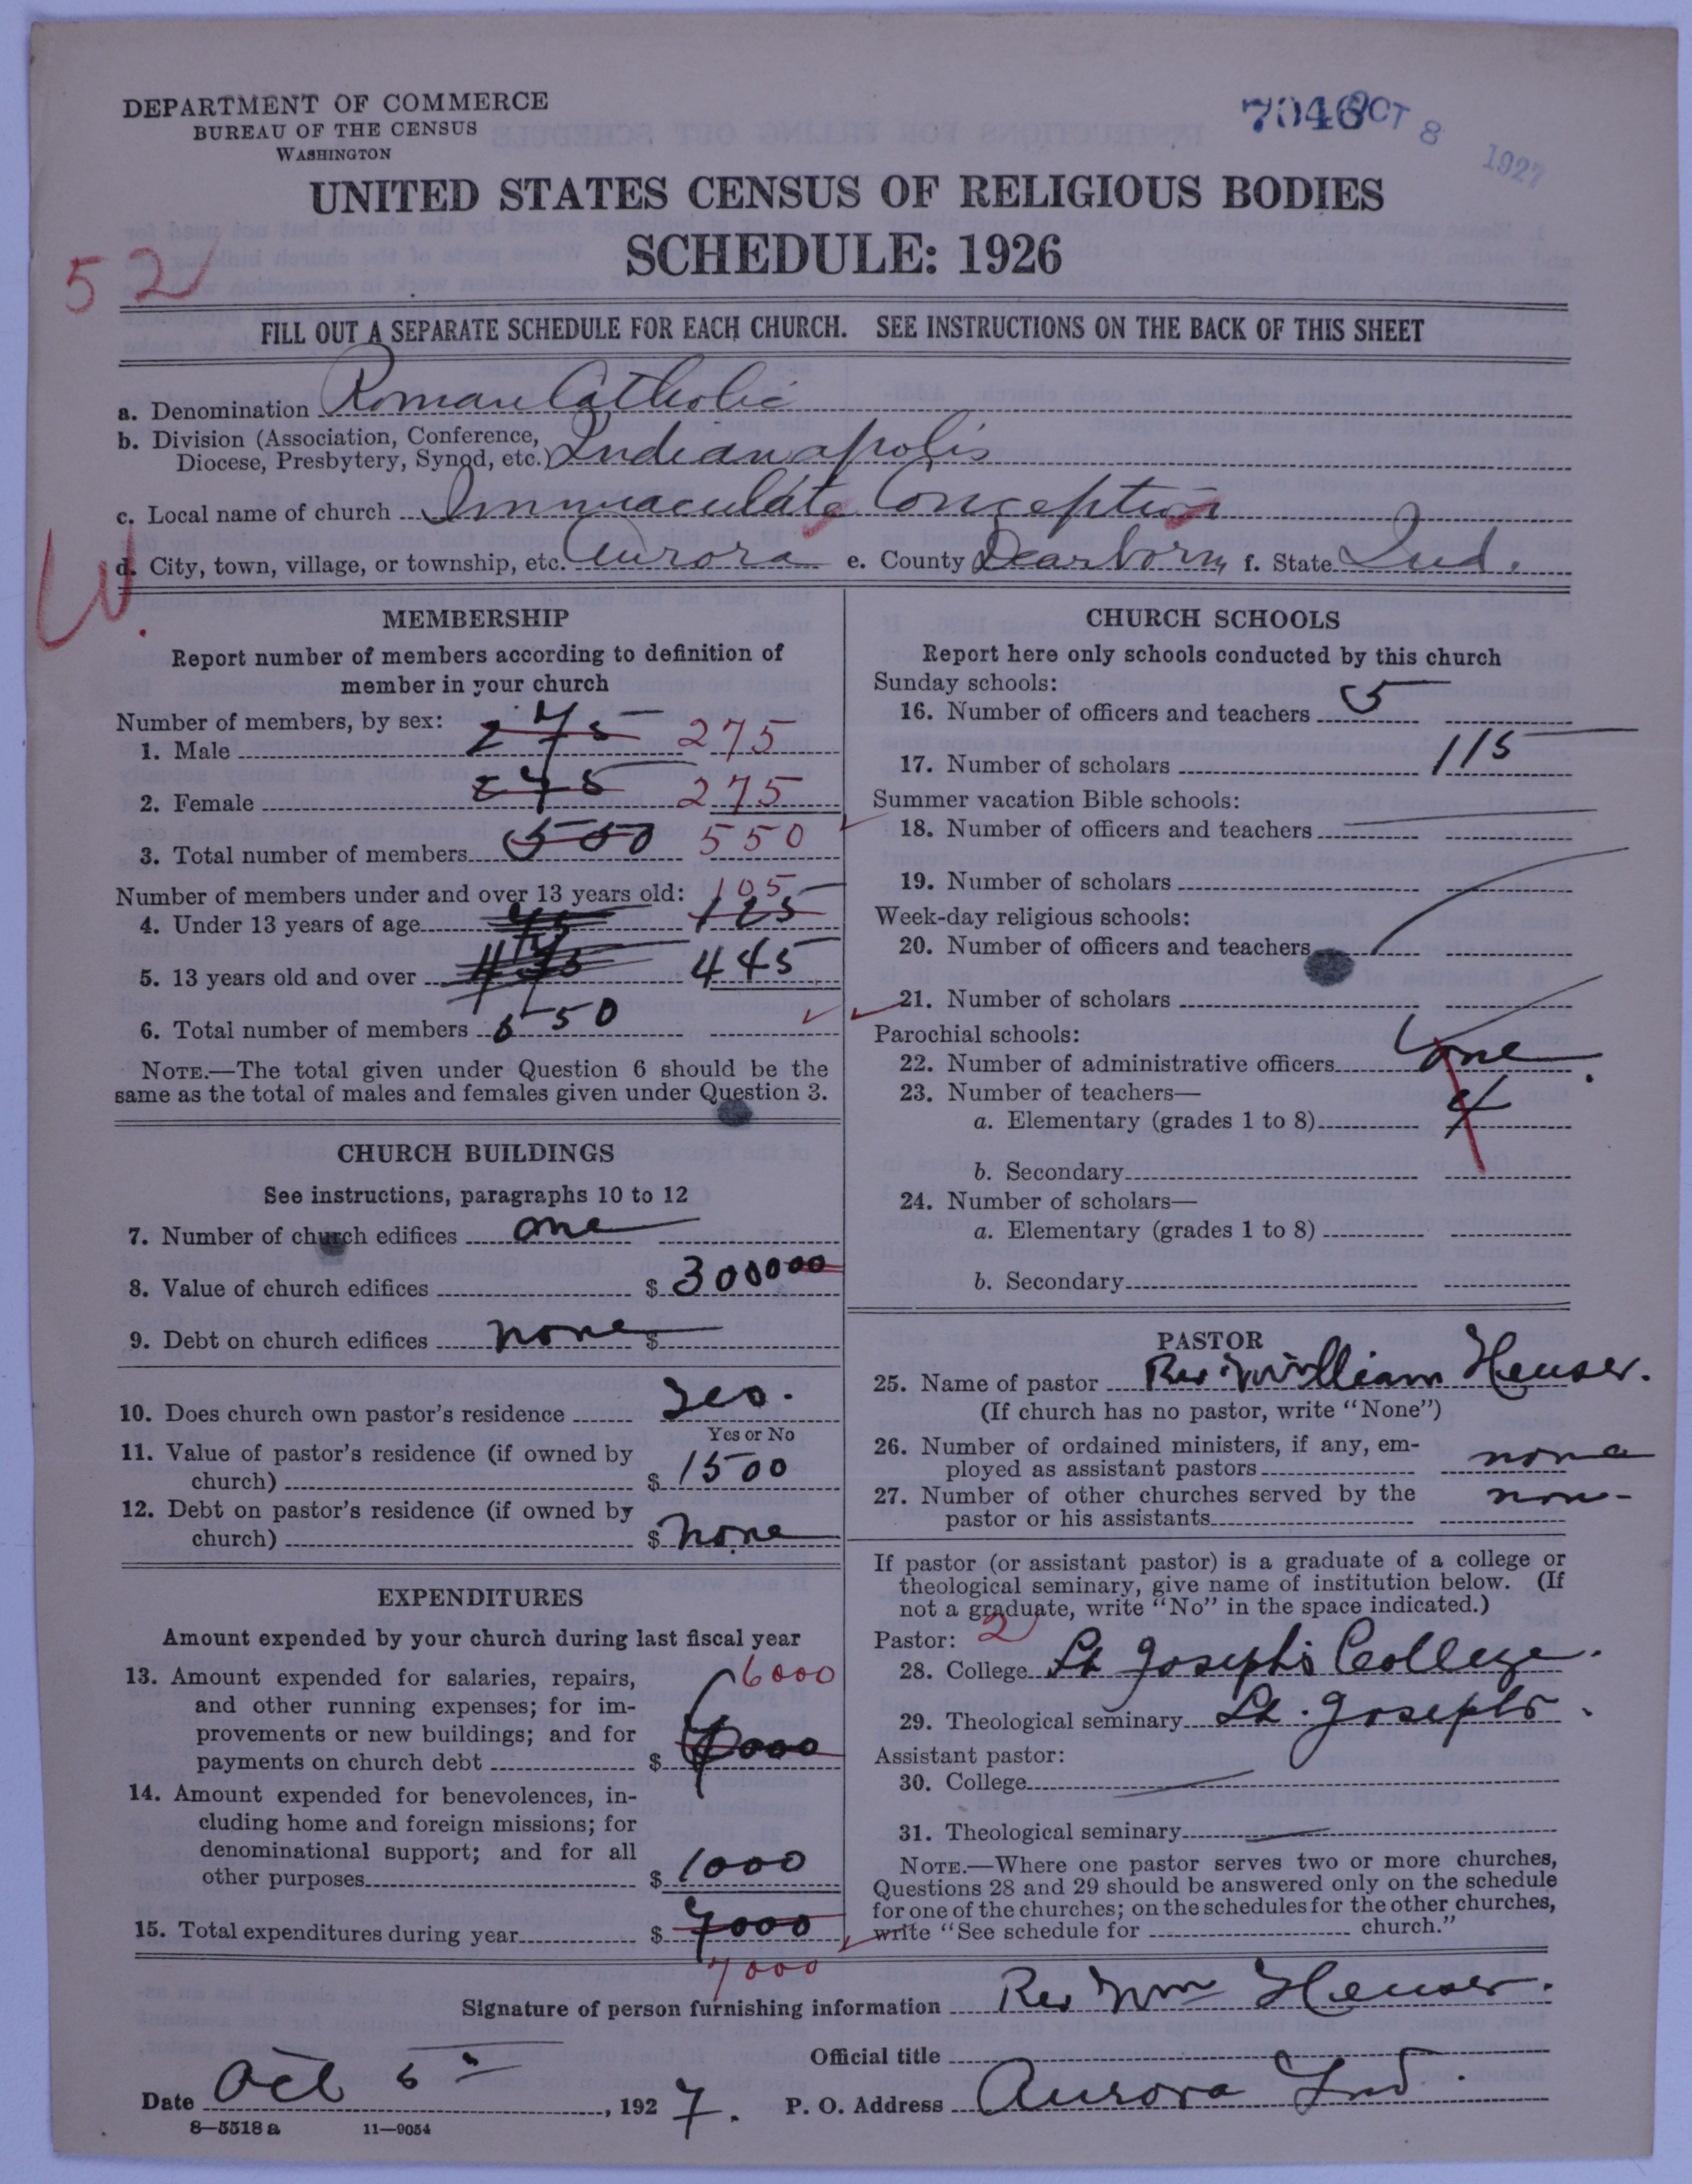 DEPARTMENT OF COMMERCE
BUREAU OF THE CENSUS
WASHINGTON
7046 OCT 8 1927
UNITED STATES CENSUS OF RELIGIOUS BODIES
SCHEDULE: 1926
52
FILL OUT A SEPARATE SCHEDULE FOR EACH CHURCH. SEE INSTRUCTIONS ON THE BACK OF THIS SHEET
a. Denomination Roman Catholic
b. Division (Association, Conference,
Diocese, Presbytery, Synod, etc.) Indianapolis
c. Local name of church Immaculate Conception
W.
d. City, town, village, or township, etc. Aurora e. County Dearborn f. State Ind.
MEMBERSHIP
Report number of members according to definition of
member in your church
Number of members, by sex:
1. Male 275 275
2. Female 275 275
3. Total number of members 550 550
Number of members under and over 13 years old: 105
4. Under 13 years of age 125
5. 13 years old and over 445
6. Total number of members 550
NOTE.—The total given under Question 6 should be the
same as the total of males and females given under Question 3.
CHURCH BUILDINGS
See instructions, paragraphs 10 to 12
7. Number of church edifices one
8. Value of church edifices $ 300000
9. Debt on church edifices none $
10. Does church own pastor's residence Yes.
Yes or No
11. Value of pastor's residence (if owned by
church) $ 1500
12. Debt on pastor's residence (if owned by
church) $ none
EXPENDITURES
Amount expended by your church during last fiscal year
13. Amount expended for salaries, repairs, 6000
and other running expenses; for im-
provements or new buildings; and for
payments on church debt $ 7000
14. Amount expended for benevolences, in-
cluding home and foreign missions; for
denominational support; and for all
other purposes $ 1000
15. Total expenditures during year $ 7000
7000
CHURCH SCHOOLS
Report here only schools conducted by this church
Sunday schools:
16. Number of officers and teachers 5
17. Number of scholars 115
Summer vacation Bible schools:
18. Number of officers and teachers
19. Number of scholars
Week-day religious schools:
20. Number of officers and teachers
21. Number of scholars
Parochial schools:
22. Number of administrative officers one
23. Number of teachers—
a. Elementary (grades 1 to 8) 4
b. Secondary
24. Number of scholars—
a. Elementary (grades 1 to 8)
b. Secondary
PASTOR
25. Name of pastor Rev. William Heuser.
(If church has no pastor, write "None")
26. Number of ordained ministers, if any, em-
ployed as assistant pastors none
27. Number of other churches served by the
pastor or his assistants non-
If pastor (or assistant pastor) is a graduate of a college or
theological seminary, give name of institution below. (If
not a graduate, write "No" in the space indicated.)
Pastor: 2
28. College St Joseph's College.
29. Theological seminary St. Josephs.
Assistant pastor:
30. College
31. Theological seminary
NOTE.—Where one pastor serves two or more churches,
Questions 28 and 29 should be answered only on the schedule
for one of the churches; on the schedules for the other churches,
write "See schedule for church."
Signature of person furnishing information Rev Wm Heuser.
Official title
Date Oct 5, 1927. P. O. Address Aurora Ind.
8—5518a 11—9054